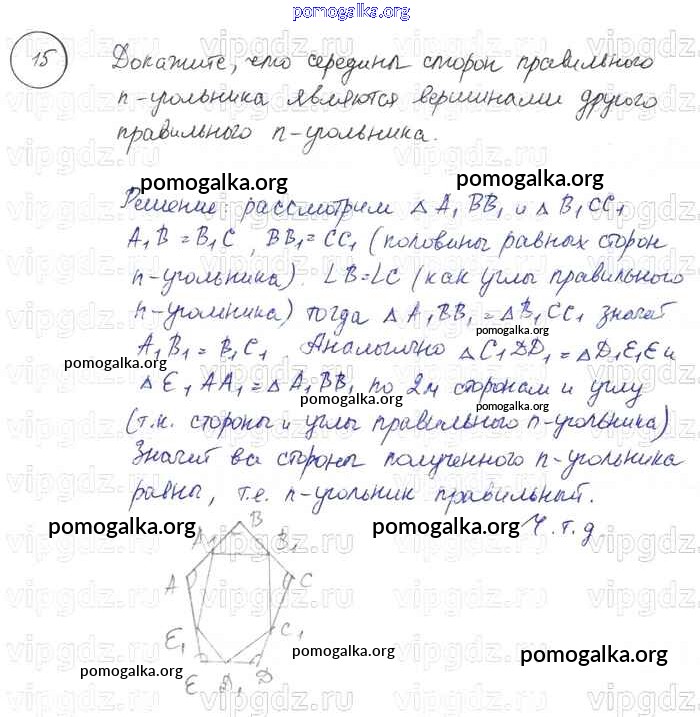 pomogalka.org
15
Докажите, что середины сторон правильного
n-угольника являются вершинами другого
правильного n-угольника.
pomogalka.org pomogalka.org
Решение: рассмотрим △ A₁BB₁ и △ B₁CC₁
A₁B = B₁C, BB₁ = CC₁ (половины равных сторон
n-угольника). ∠B=∠C (как углы правильного
n-угольника) тогда △ A₁BB₁ = △B₁CC₁ значит
pomogalka.org
A₁B₁ = B₁C₁. Аналогично △C₁DD₁ = △D₁E₁E и
pomogalka.org
△ E₁AA₁ = △ A₁BB₁ по 2м сторонам и углу
pomogalka.org
(т.к. стороны и углы правильного n-угольника)
Значит все стороны полученного n-угольника
равны, т.е. n-угольник правильный.
Ч.т.д.
pomogalka.org pomogalka.org
B
A₁ B₁
A C
E₁ C₁
E D₁ D
pomogalka.org
pomogalka.org
pomogalka.org
vipgdz.ru